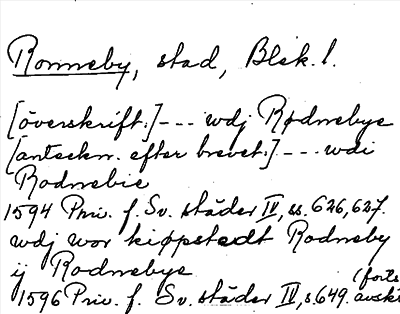 Ronneby, stad, Blek. l.
[överskrift:] --- wdj Rødnebye
[anteckn. efter brevet:] --- wdi
Rodnebie
1594 Priv. f. Sv. städer IV, ss. 626, 627.
wdj wor kiøpstedt Rodneby
ij Rodnebye
(forts
1596 Priv. f. Sv. städer IV, s. 649. avskr